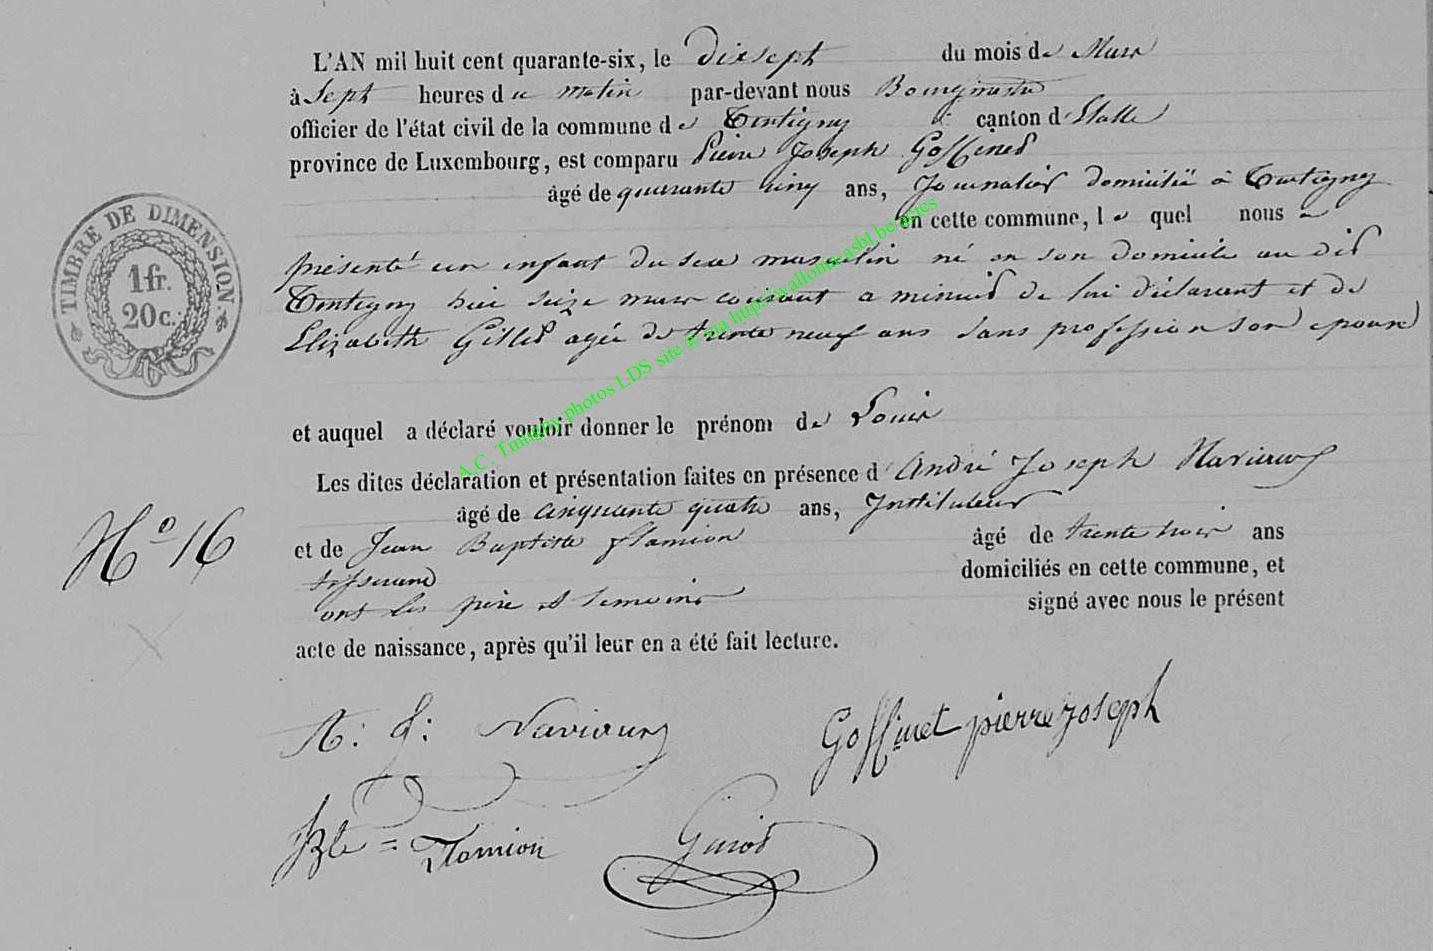 L'AN mil huit cent quarante-six, le dixsept du mois de Mars
à Sept heures du matin par-devant nous Bourgmestre
officier de l'état civil de la commune de Tintigny canton d'Etalle
province de Luxembourg, est comparu Pierre Joseph Goffinet
âgé de quarante cinq ans, Journalier domicilié à Tintigny
en cette commune, lequel nous a
présenté un enfant du sexe masculin né en son domicile au dit
Tintigny hier seize mars courant a minuit de lui déclarant et de
Elizabeth Gillet agée de trente neuf ans sans profession son epouse
et auquel a déclaré vouloir donner le prénom de Louis
Les dites déclaration et présentation faites en présence d'André Joseph Naviaux
âgé de cinquante quatre ans, Instituteur
et de Jean Baptiste flamion âgé de trente trois ans
tisserand domiciliés en cette commune, et
ont les père et temoins signé avec nous le présent
acte de naissance, après qu'il leur en a été fait lecture.
N° 16
TIMBRE DE DIMENSION.
1 fr.
20 c.
A. J. Naviaux
Goffinet pierre joseph
JBte = Flamion
A.C. Tintigny photos LDS site @ via http://wallonia-asbl.be/actes